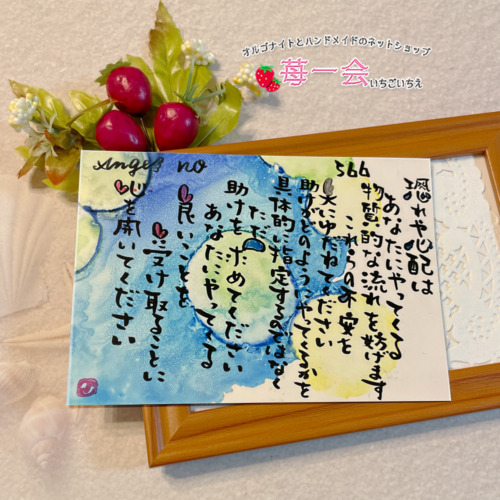 オルゴナイトとハンドメイドのネットショップ
苺一会 いちごいちえ
Angel no 566
恐れや心配は
あなたにやってくる
物質的な流れを妨げます
これらの不安を
天にゆだねてください
助けがどのようにやってくるかを
具体的に指定するのではなく
ただ
助けを求めてください
あなたにやってくる
良いことを
受け取ることに
心を開いてください